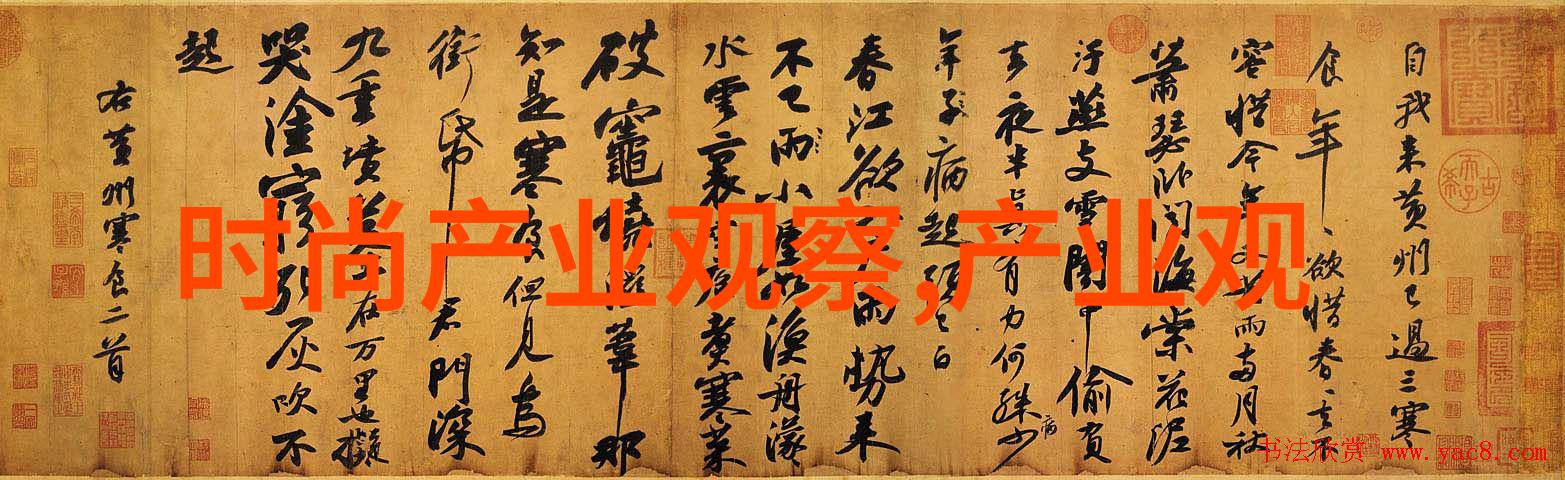 时尚产业观察,产业观
自我来黄州已過三寒
食年〻欲惜春〻去不
容惜今年又苦雨兩月秋
蕭瑟卧聞海棠花泥
汙燕支雪闇中偷負
去夜半真有力何殊少
病
年子病起頭已白
春江欲入户雨勢来
不已雨小屋如漁舟濛
水雲裏空庖煮寒菜
破竈燒濕葦那
知是寒食但見烏
銜帋君門深
九重墳墓在万里也擬
哭塗窮死灰吹不
起
右黄州寒食二首
书法欣赏 www.yac8.com